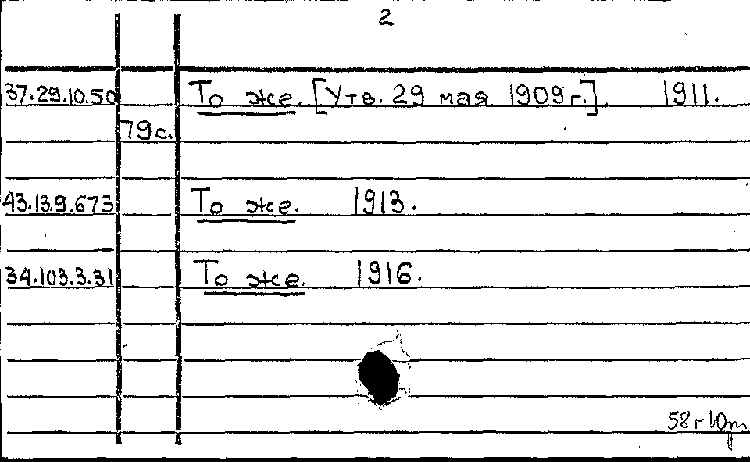 2
37.29.10.50 То же. [Утв. 29 мая 1909 г.]. 1911.
79 с.
43.13.9.673 То же. 1913.
34.103.3.31 То же. 1916.
58 г